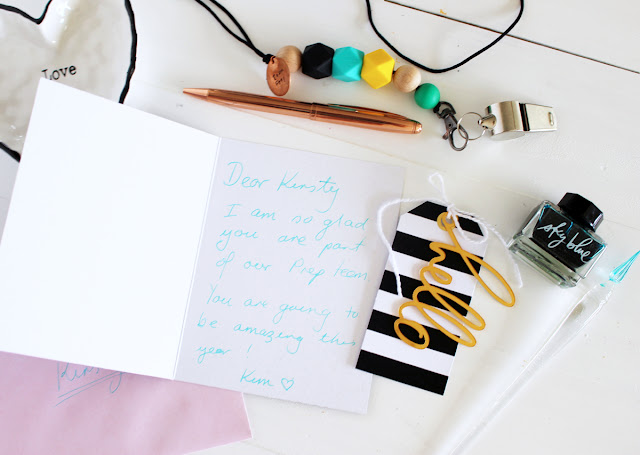 Love
Dear Kirsty
I am so glad
you are part
of our Prep team.
You are going to
be amazing this
year!
Kim ♡
hello
sky blue
Kirsty